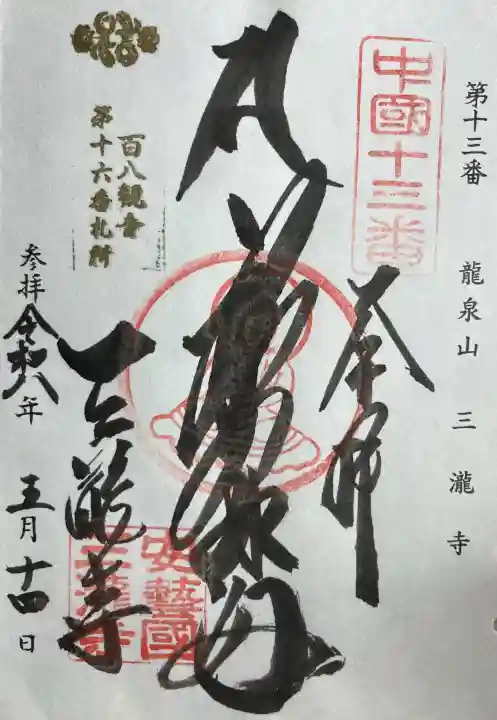 第十三番　龍泉山　三瀧寺
中國十三番
三瀧寺
安藝國
三瀧寺
百八観音
第十六番札所
参拝 令和八年 五月十四日